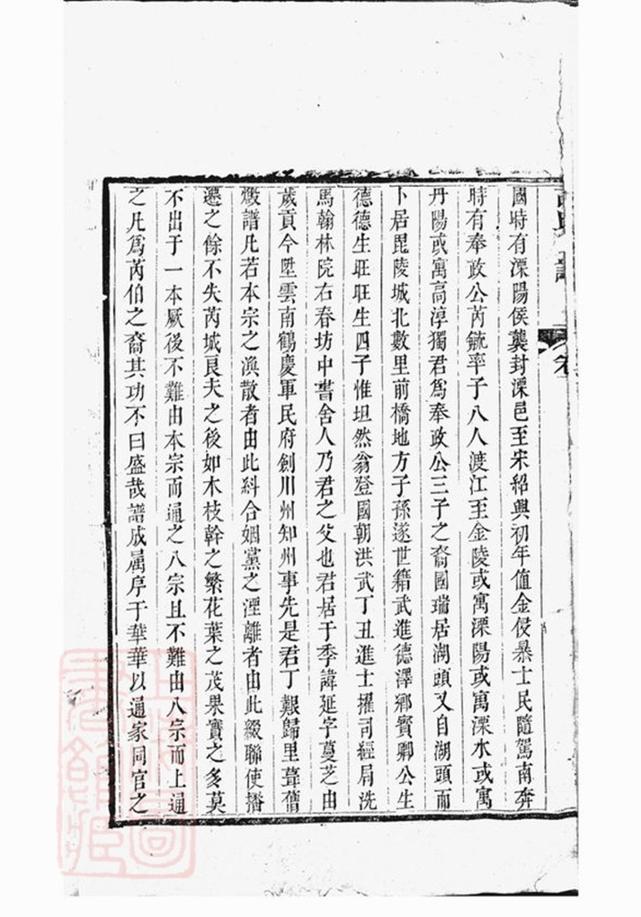 國時有溧陽侯龔封溧邑至宋紹興初年值金侵暴士民隨駕南奔
時有奉政公芮毓率子八人渡江至金陵或寓溧陽或寓溧水或寓
丹陽或寓高淳獨君爲奉政公三子之裔國瑞居湖頭又自湖頭而
卜居毘陵城北數里前橋地方子孫遂世籍武進德澤鄉賓卿公生
德德生旺旺生四子惟坦然翁登國朝洪武丁丑進士擢司經局洗
馬翰林院右春坊中書舍人乃君之父也君居于季諱延字蔓芝由
歲貢今陞雲南鶴慶軍民府劍川州知州事先是君丁艱歸里葺舊
燬譜凡若本宗之渙散者由此糾合姻黨之湮離者由此綴聯使播
遷之餘不失芮城良夫之後如木枝幹之繁花葉之茂果實之多莫
不出于一本厥後不難由本宗而通之八宗且不難由八宗而上通
之凡爲芮伯之裔其功不曰盛哉譜成属序于華華以通家同官之